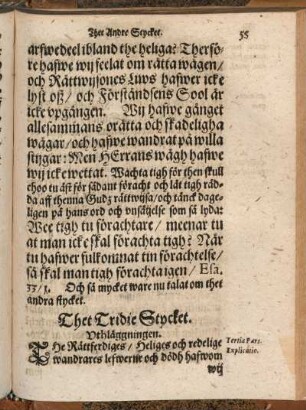 Thet Andre Stycket. 55
arfwedeel ibland the heliga? Therfö-
re hafwe wij feelat om rätta wägen/
och Rättwijsones Liws hafwer icke
lyst oß/ och Förståndsens Sool är
icke vpgången. Wij hafwe gånget
allesammans orätta och skadeligha
wägar/ och hafwe wandrat på willa
stijgar: Men HErrans wägh hafwe
wij icke wettat. Wachta tigh för then skull
ehoo tu äst för sådant föracht och låt tigh räd-
da aff thenna Gudz rättwijsa/ och tänck dage-
ligen på hans ord och vnsätjelse som så lyda:
Wee tigh tu förachtare/ meenar tu
at man icke skal förachta tigh? När
tu hafwer fulkomnat tin förachtelse/
så skal man tigh förachta igen/ Esa.
33/1. Och så mycket ware nu talat om thet
andra stycket.
Thet Tridie Stycket.
Vthläggningen.
THe Rättferdiges/ Heliges och redelige
wandrares lefwerne och dödh hafwom
wij
Tertia Pars.
Explicatio.